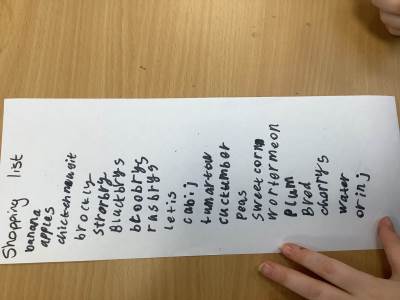 Shopping list
banana
apples
chickennoweit
brocly
strorbry
Blackbrys
bloobrys
rasbrys
letis
cabij
tumartow
cuctumber
Peas
sweetcorn
wortermeon
Plum
Bred
charrys
water
orinj